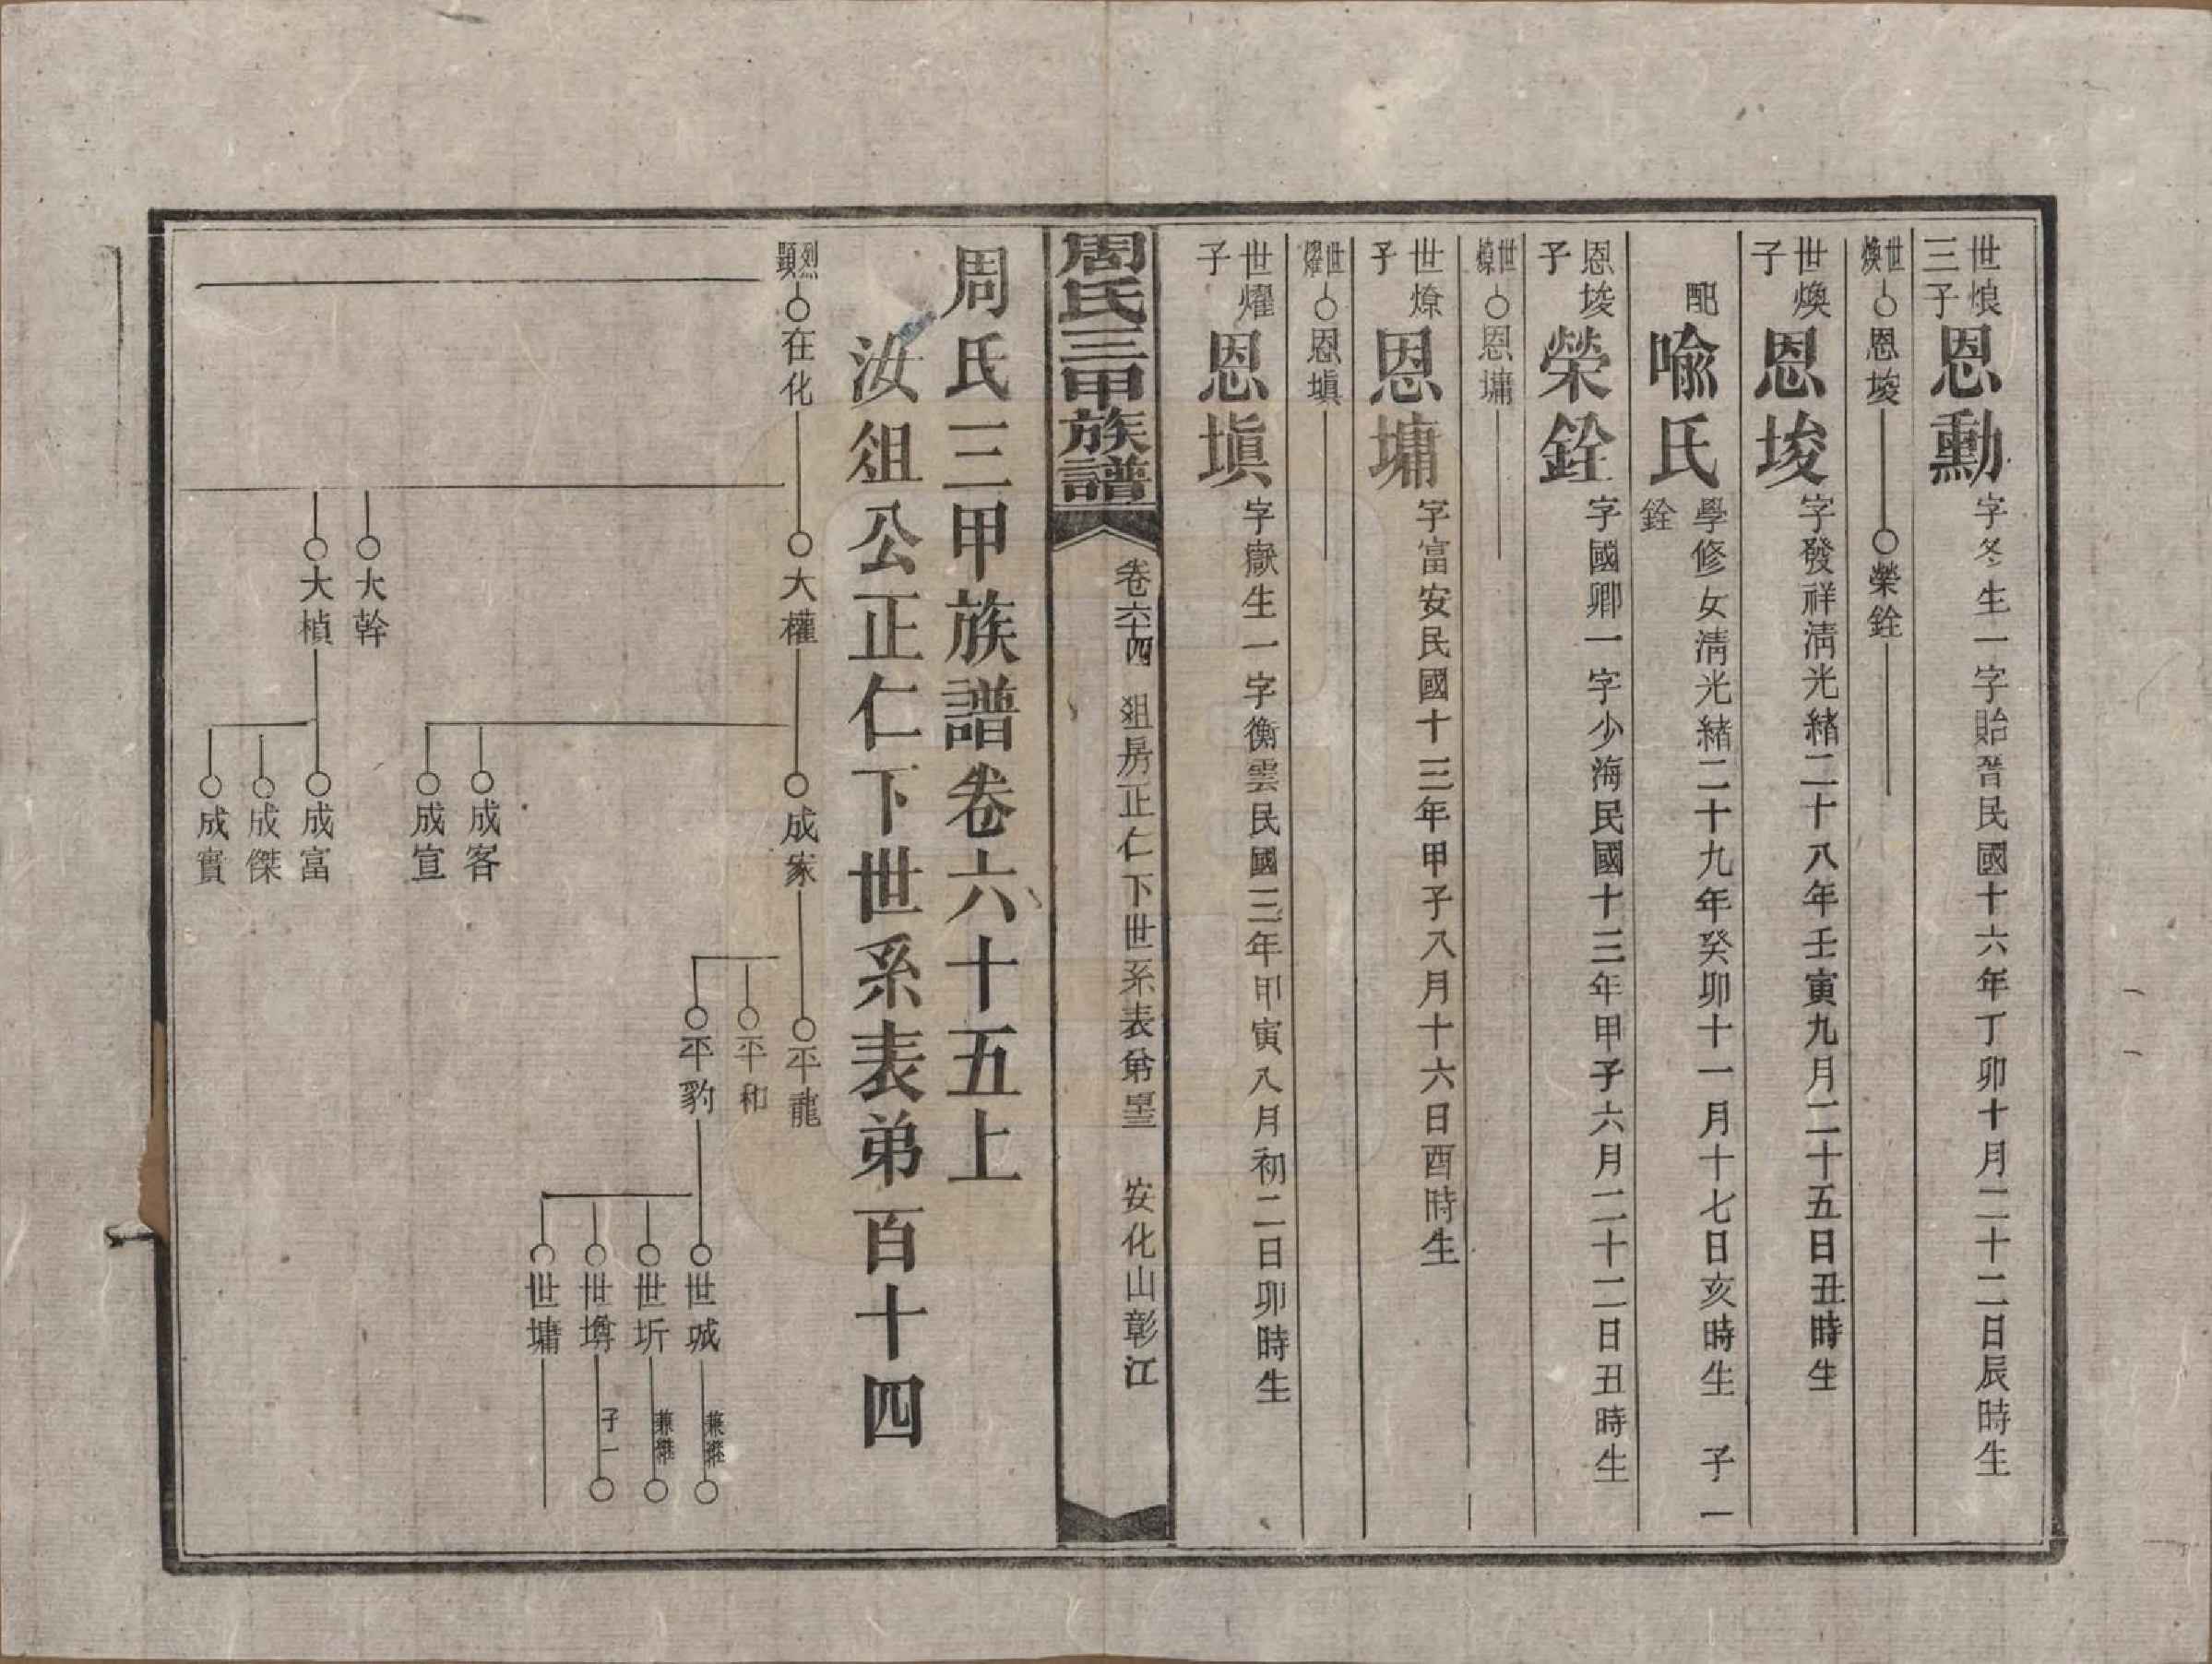 世烺三子 恩勳 字冬生一字貽晉民國十六年丁卯十月二十二日辰時生
世煥 恩埈 榮銓
世煥子 恩埈 字發祥淸光緒二十八年壬寅九月二十五日丑時生
配 喩氏 學修女淸光緒二十九年癸卯十一月十七日亥時生 子一 銓
恩埈子 榮銓 字國卿一字少海民國十三年甲子六月二十二日丑時生
世燎 恩墉
世燎子 恩墉 字富安民國十三年甲子八月十六日酉時生
世燿 恩塡
世燿子 恩塡 字嶽生一字衡雲民國三年甲寅八月初二日卯時生
周氏三甲族譜 卷六十四 俎房正仁下世系表第 安化山彰江
周氏三甲族譜卷六十五上
汝俎公正仁下世系表弟百十四
烈顯 在化 大權 成家 平龍
平和
平豹 世城 兼繼
世圻 兼繼
世墫 子一
世墉
成客
成宣
大幹
大楨 成富
成傑
成實